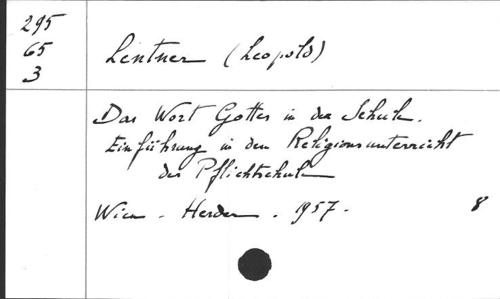 295
65
3
Lentner (Leopold)
Das Wort Gottes in der Schule.
Einführung in den Religionsunterricht
der Pflichtschule
Wien - Herder - 1957 - 8